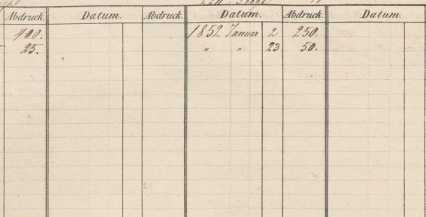 Abdruck. Datum. Abdruck. Datum. Abdruck. Datum.
400. 1852 Januar 2 250.
25. " " 23 50.